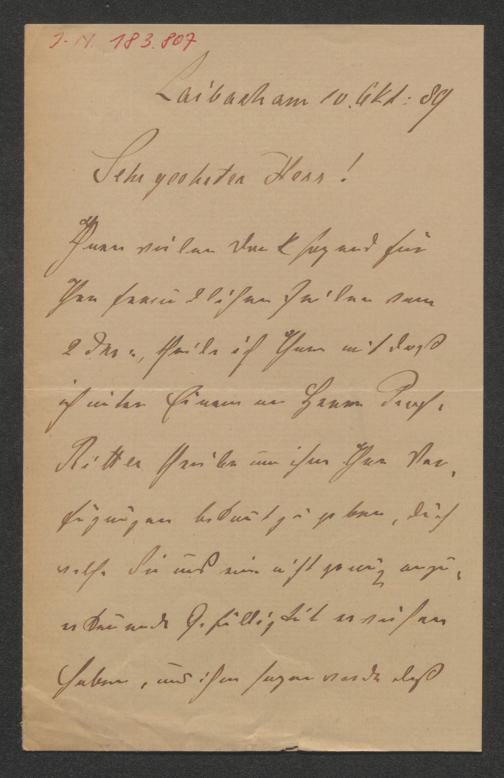 J. N. 183.807
Laibach am 10. Okt: 89
Sehr geehrter Herr!
Ihnen vielen Dank sagend für
Ihre freundlichen Zeilen vom
2 ds:, theile ich Ihnen mit daß
ich unter Einem an Herrn Prof.
Ritter schreibe um ihm Ihre Ver-
fügungen bekannt zu geben, durch
welche Sie uns eine nicht genug anzu-
erkennende Gefälligkeit erwiesen
haben, und ihm sagen werde daß